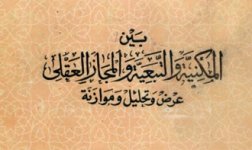 بين
المكنية والتبعية والمجاز العقلي
عرض وتحليل وموازنة